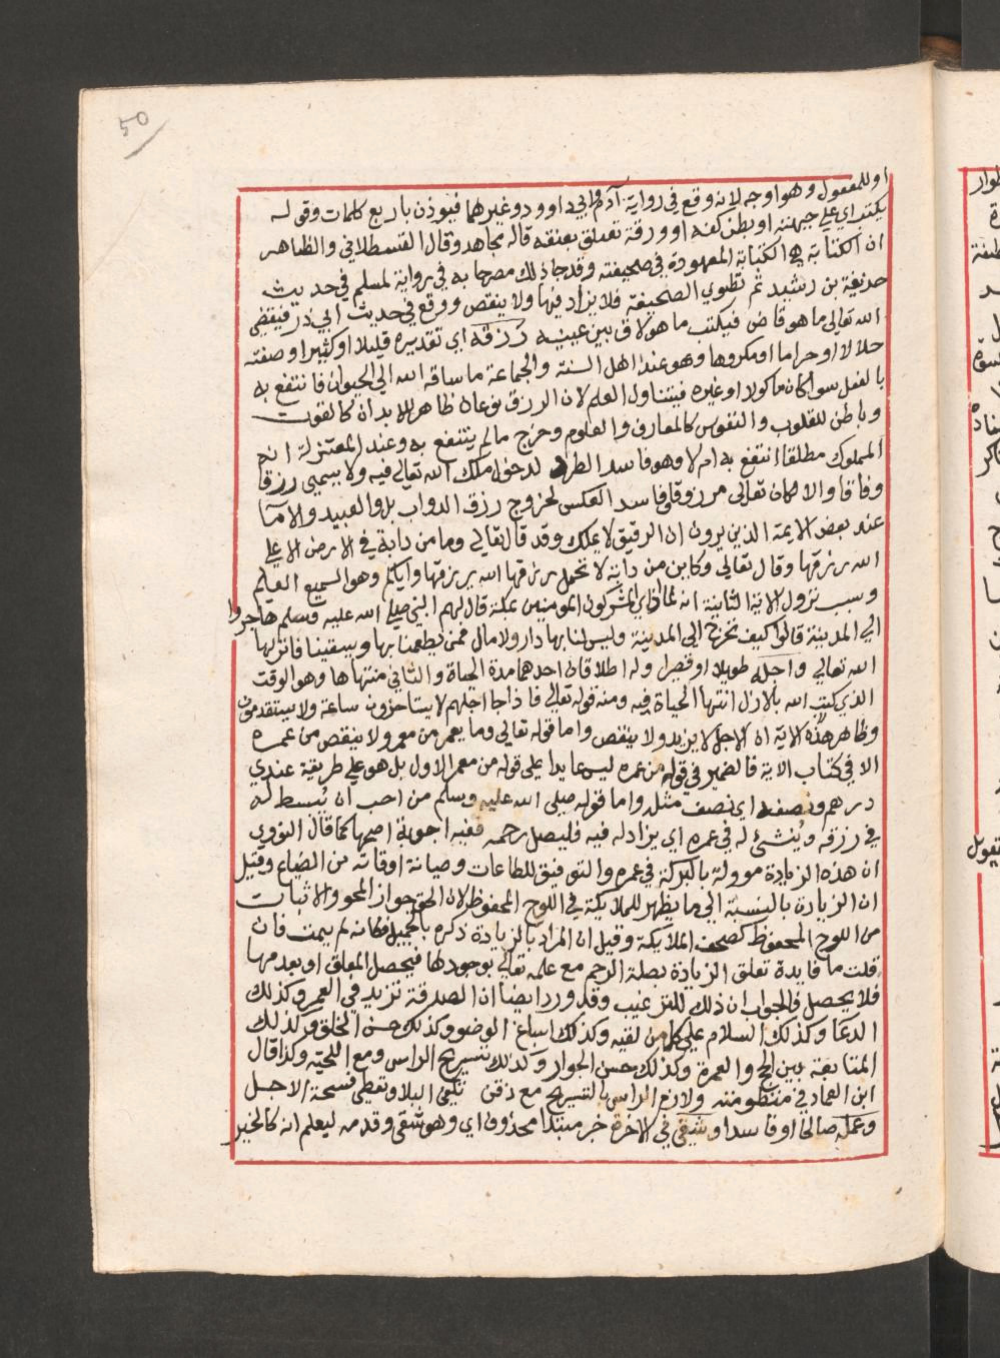 50
او للمفعول وهو اوجه لانه وقع في رواية آدم وابي داوود وغيرهما فيوذن باربع كلمات وقوله
يكتب اي على جبهته او بطن كفه او ورقة تعلق بعنقه قاله مجاهد وقال القسطلاني والظاهر
ان الكتابة هي الكتابة المعهودة في صحيفته وقد جا ذلك مصرحا به في رواية لمسلم في حديث
حذيفة بن رشيد ثم تطوي الصحيفة فلا يزاد فيها ولا ينقص ووقع في حديث ابي ذر فيقضي
الله تعالى ما هو قاض فيكتب ما هو لاق بين عينيه رزقه اي تقديره قليلا او كثيرا وصفته
حلالا او حراما او مكروها وهو عند اهل السنة والجماعة ما ساقه الله الي الحيوان فانتفع به
بالفعل سوا كان ماكولا او غيره فيتناول العلم لان الرزق نوعان ظاهر للابدان كالقوت
وباطن للقلوب والنفوس كالمعارف والعلوم وخرج ما لم ينتفع به وعند المعتزلة انه
المملوك مطلقا انتفع به ام لا وهو فاسد الطرد لدخول ملك الله تعالى فيه ولا يسمى رزقا
وفاقا والا لكان تعالى مرزوقا وفاسد العكس لخروج رزق الدواب بل والعبيد والاما
عند بعض الايمة الذين يرون ان الرقيق لا يملك وقد قال تعالي وما من دابة في الارض الا على
الله رزقها وقال تعالى وكاين من دابة لا تحمل رزقها الله يرزقها واياكم وهو السميع العليم
وسبب نزول الاية الثانية انه لما اذي المشركون المومنين بمكة قال لهم النبي صلى الله عليه وسلم هاجروا
الي المدينة قالوا كيف نخرج الى المدينة وليس لنا بها دار ولا مال فمن يطعمنا بها ويسقينا فانزلها
الله تعالي واجله طويلا او قصيرا وله اطلاقان احدهما مدة الحياة والثاني منتهاها وهو الوقت
الذي كتب الله بالازل انتها الحياة فيه ومنه قوله تعالى فاذا جا اجلهم لا يستاخرون ساعة ولا يستقدمون
وظاهر هذه الاية ان الاجل لا يزيد ولا ينقص واما قوله تعالى وما يعمر من معمر ولا ينقص من عمره
الا في كتاب الاية فالضمير في قوله من عمره ليس عايدا على قوله من معمر الاول بل هو على طريقة عندي
درهم ونصفه اي نصف مثله واما قوله صلى الله عليه وسلم من احب ان يُبسط له
في رزقه ويُنسئ له في عمره اي يزاد له فيه فليصل رحمه ففيه اجوبة اصحها كما قال النووي
ان هذه الزيادة موولة بالبركة في عمره والتوفيق للطاعات وصيانة اوقاته من الضياع وقيل
ان الزيادة بالنسبة الي ما يظهر للملايكة في اللوح المحفوظ لان الحق جواز المحو والاثبات
من اللوح المحفوظ كصحف الملايكة وقيل ان المراد بالزيادة ذكره بالجميل فكانه لم يمت فان
قلت ما فايدة تعلق الزيادة بصلة الرحم مع علمه تعالى بوجودها فيحصل المعلق او بعدمها
فلا يحصل فالجواب ان ذلك للترغيب وقد ورد ايضا ان الصدقة تزيد في العمر وكذلك
الدعا وكذلك السلام على كل من لقيه وكذلك اسباغ الوضو وكذلك حسن الخلق وكذلك
المتابعة بين الحج والعمرة وكذلك حسن الجوار وكذلك تسريح الراس ومع اللحية وكذا قال
ابن العماد في منظومته ولازم الراس بالتسريح مع ذقن تكفى البلا وتعطى فسحة الاجل
وعمله صالحا او فاسدا وشقي في الاخرة خبر مبتدا محذوف اي وهو شقي وقدمه ليعلم انه كالخير